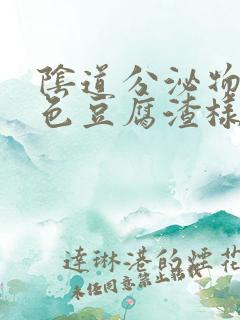 陰道分泌物
色豆腐渣樣
達琳港的煙花
未任同意禁止轉載